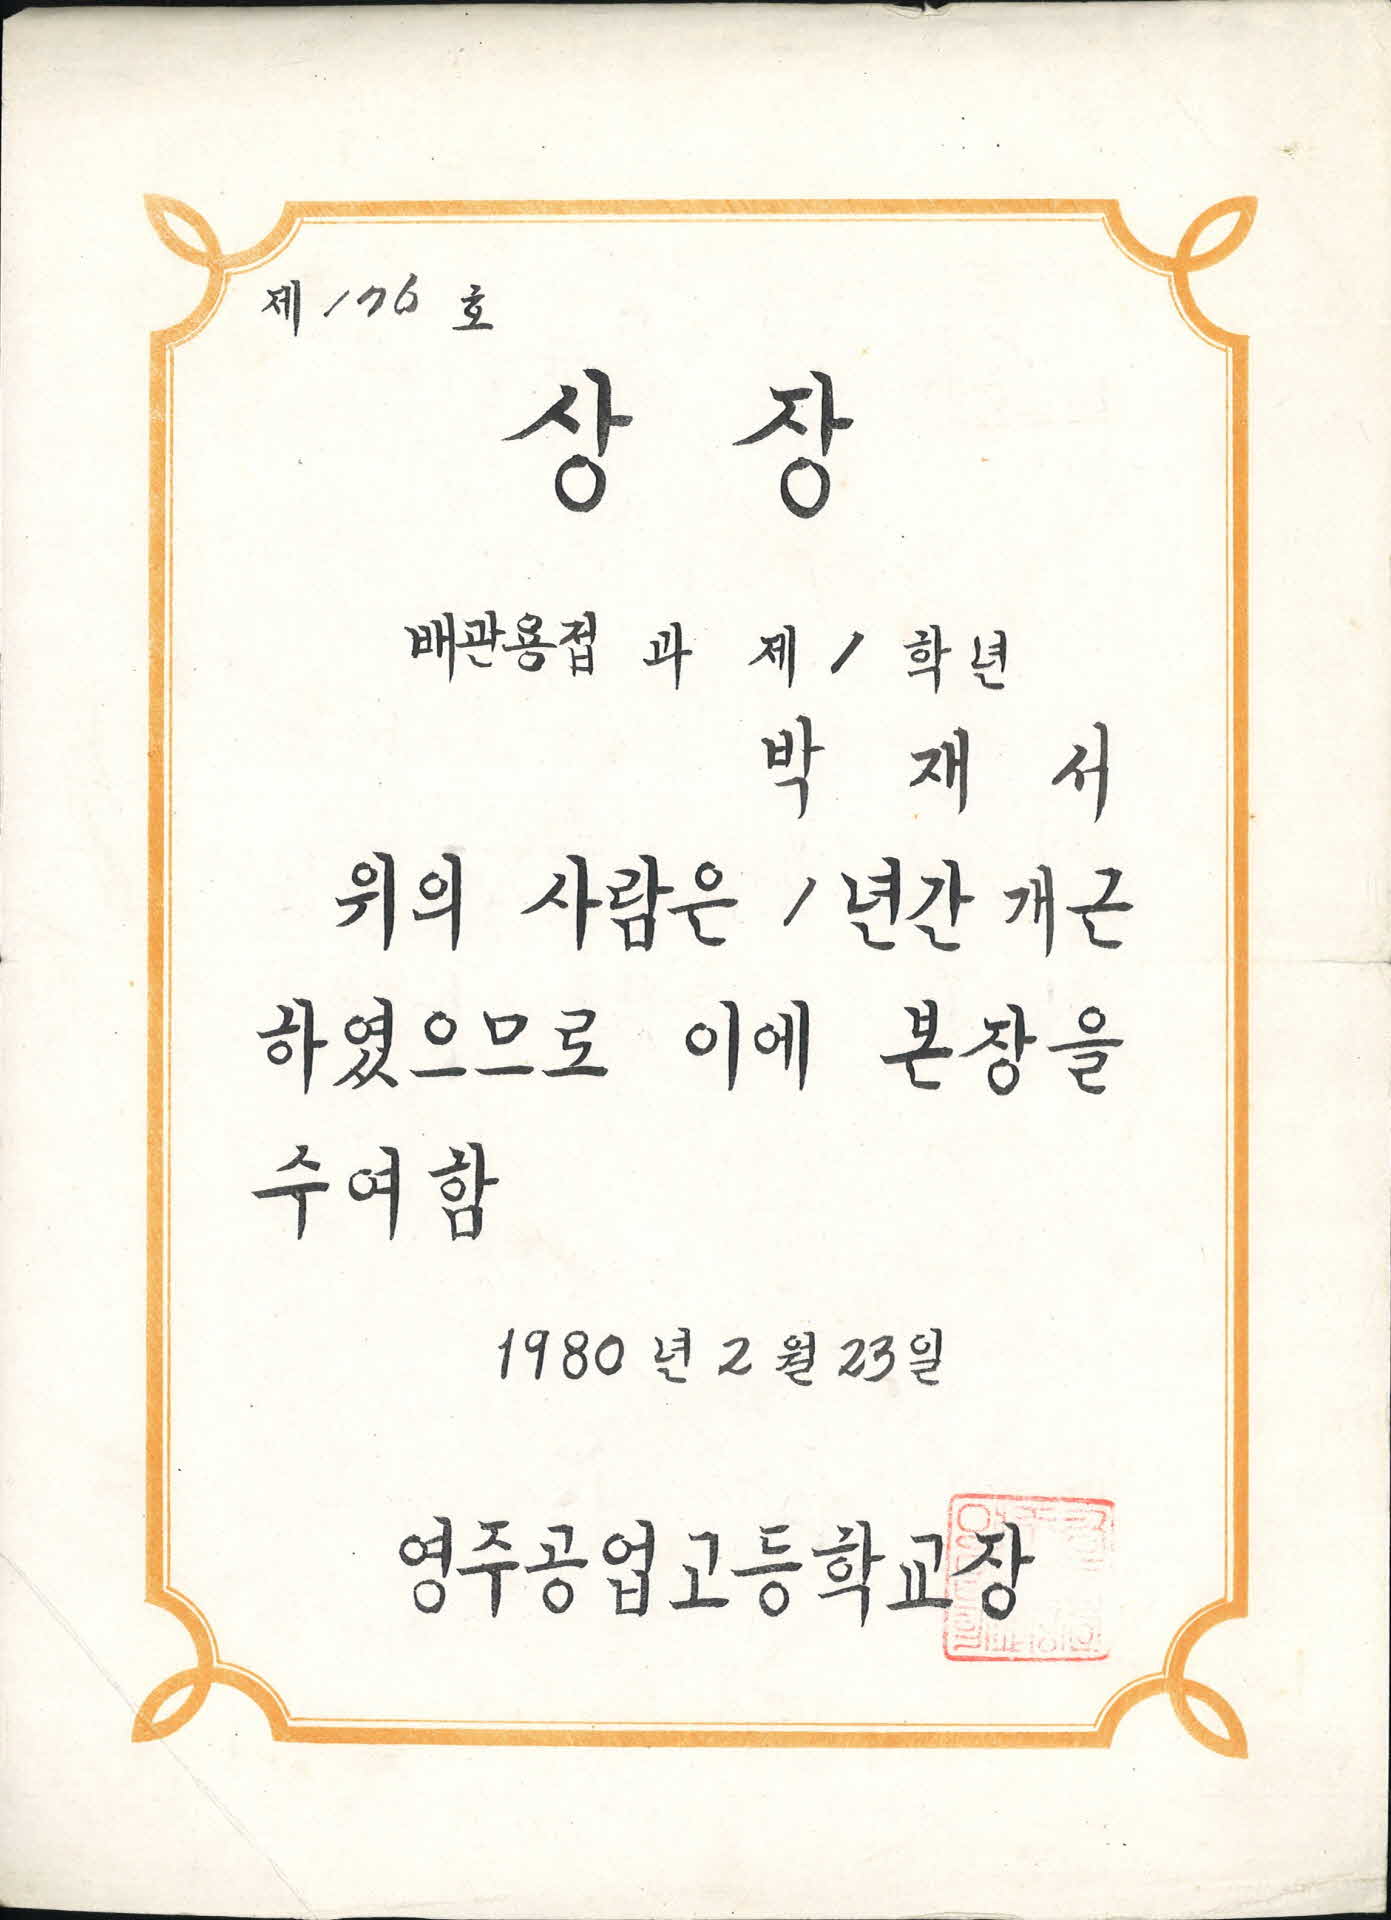 제 176 호
상 장
배관용접 과 제 1 학년
박 재 서
위의 사람은 1년간 개근
하였으므로 이에 본장을
수여함
1980년 2월 23일
영주공업고등학교장